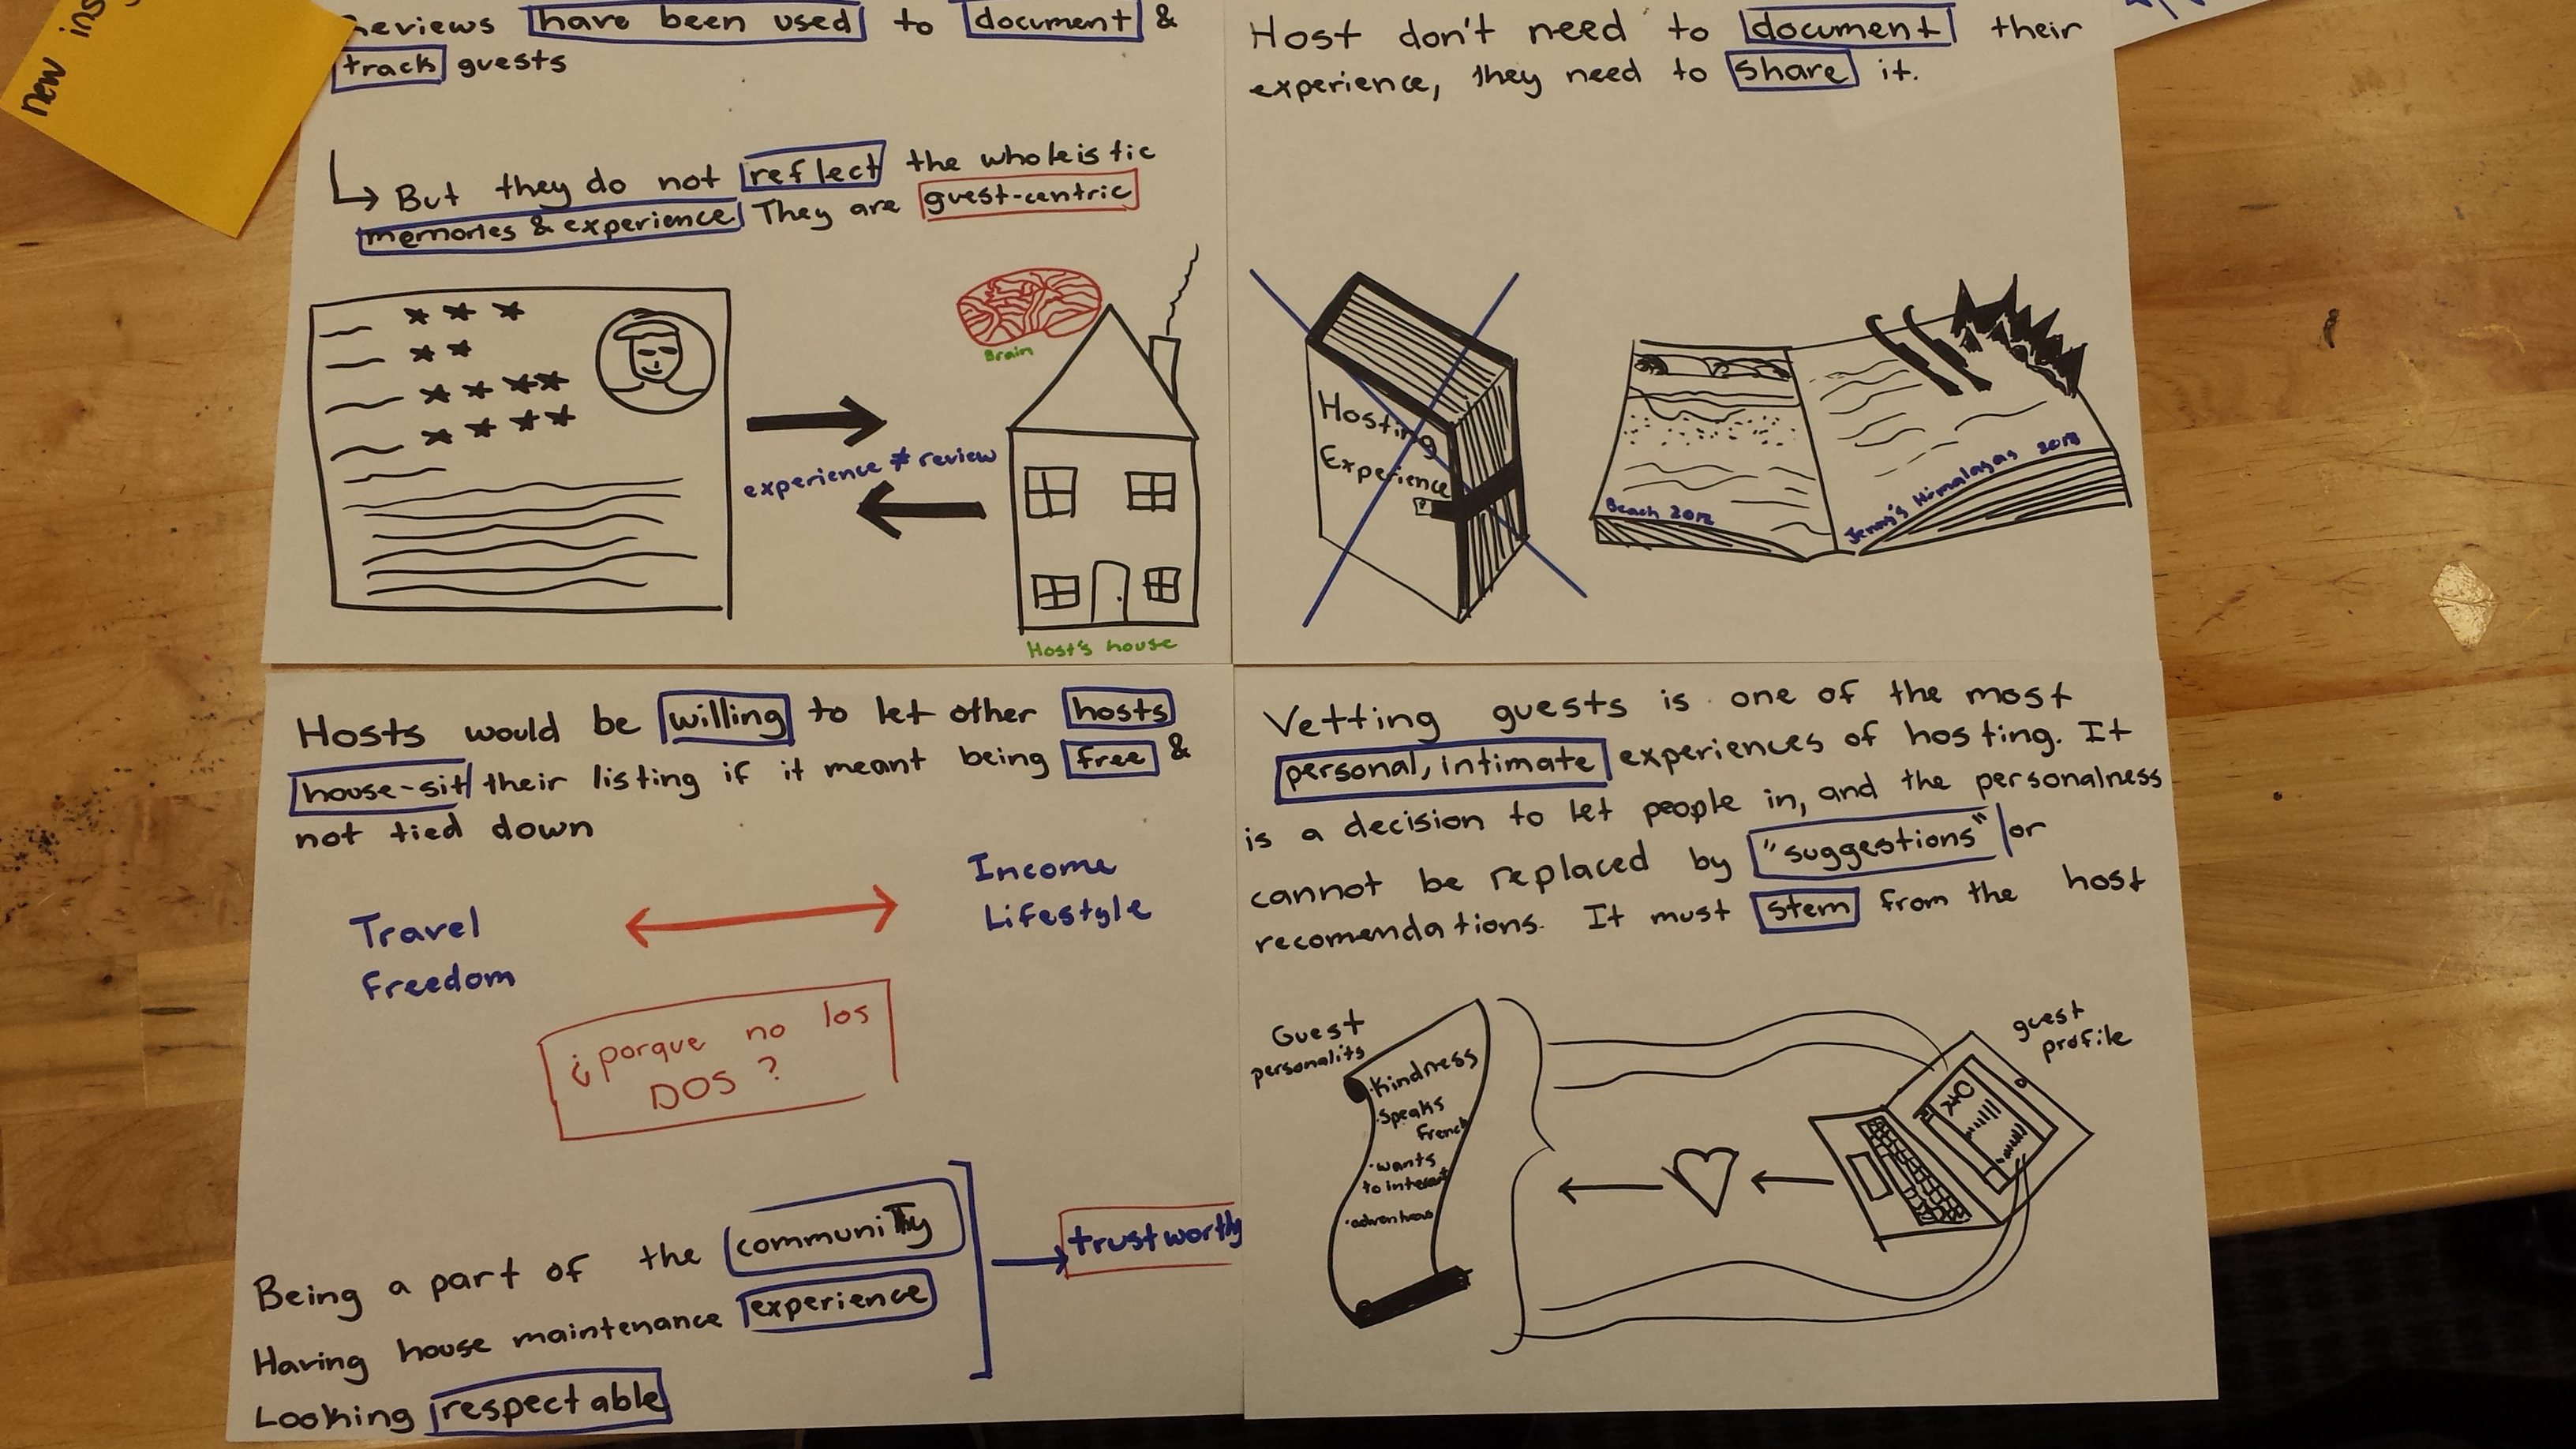 new ins
Reviews have been used to document &
track guests
But they do not reflect the wholeistic
memories & experience They are guest-centric
Brain
experience ≠ review
Host's house
Host don't need to document their
experience, they need to share it.
Hosting
Experience
Beach 2012
Jenny's Himalayas 2013
Hosts would be willing to let other hosts
house-sit their listing if it meant being free &
not tied down
Travel
Freedom
Income
Lifestyle
¿porque no los
DOS?
Being a part of the community
Having house maintenance experience
Looking respectable
trustworthy
Vetting guests is one of the most
personal, intimate experiences of hosting. It
is a decision to let people in, and the personalness
cannot be replaced by "suggestions" or
recomendations. It must stem from the host
Guest
personality
·Kindness
·Speaks
French
·wants
to interact
guest
profile